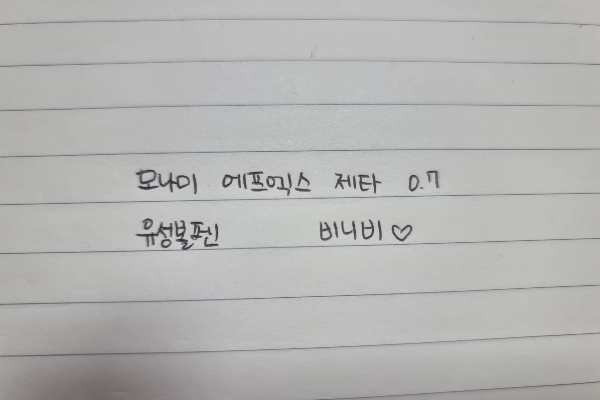 모나미 에프엑스 제타 0.7
유성볼펜 비니비♡